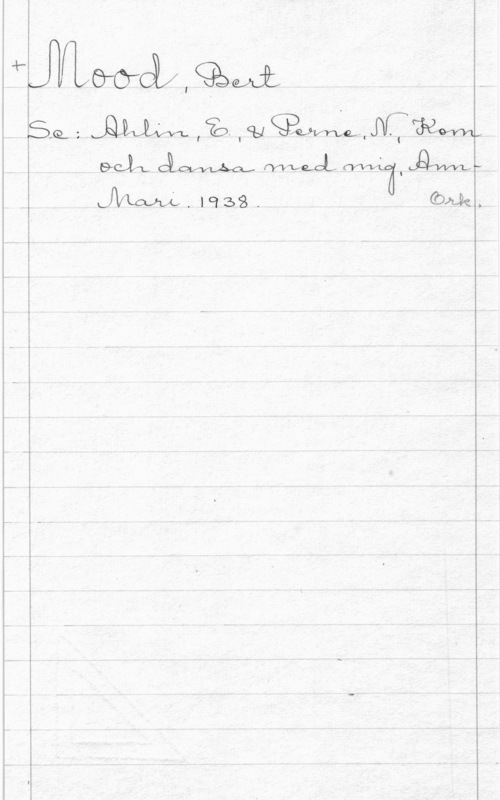 + Mood, Bert
Se: Ahlin, E, & Perne, N, Kom
och dansa med mig, Ann-
Mari. 1938. Ork.